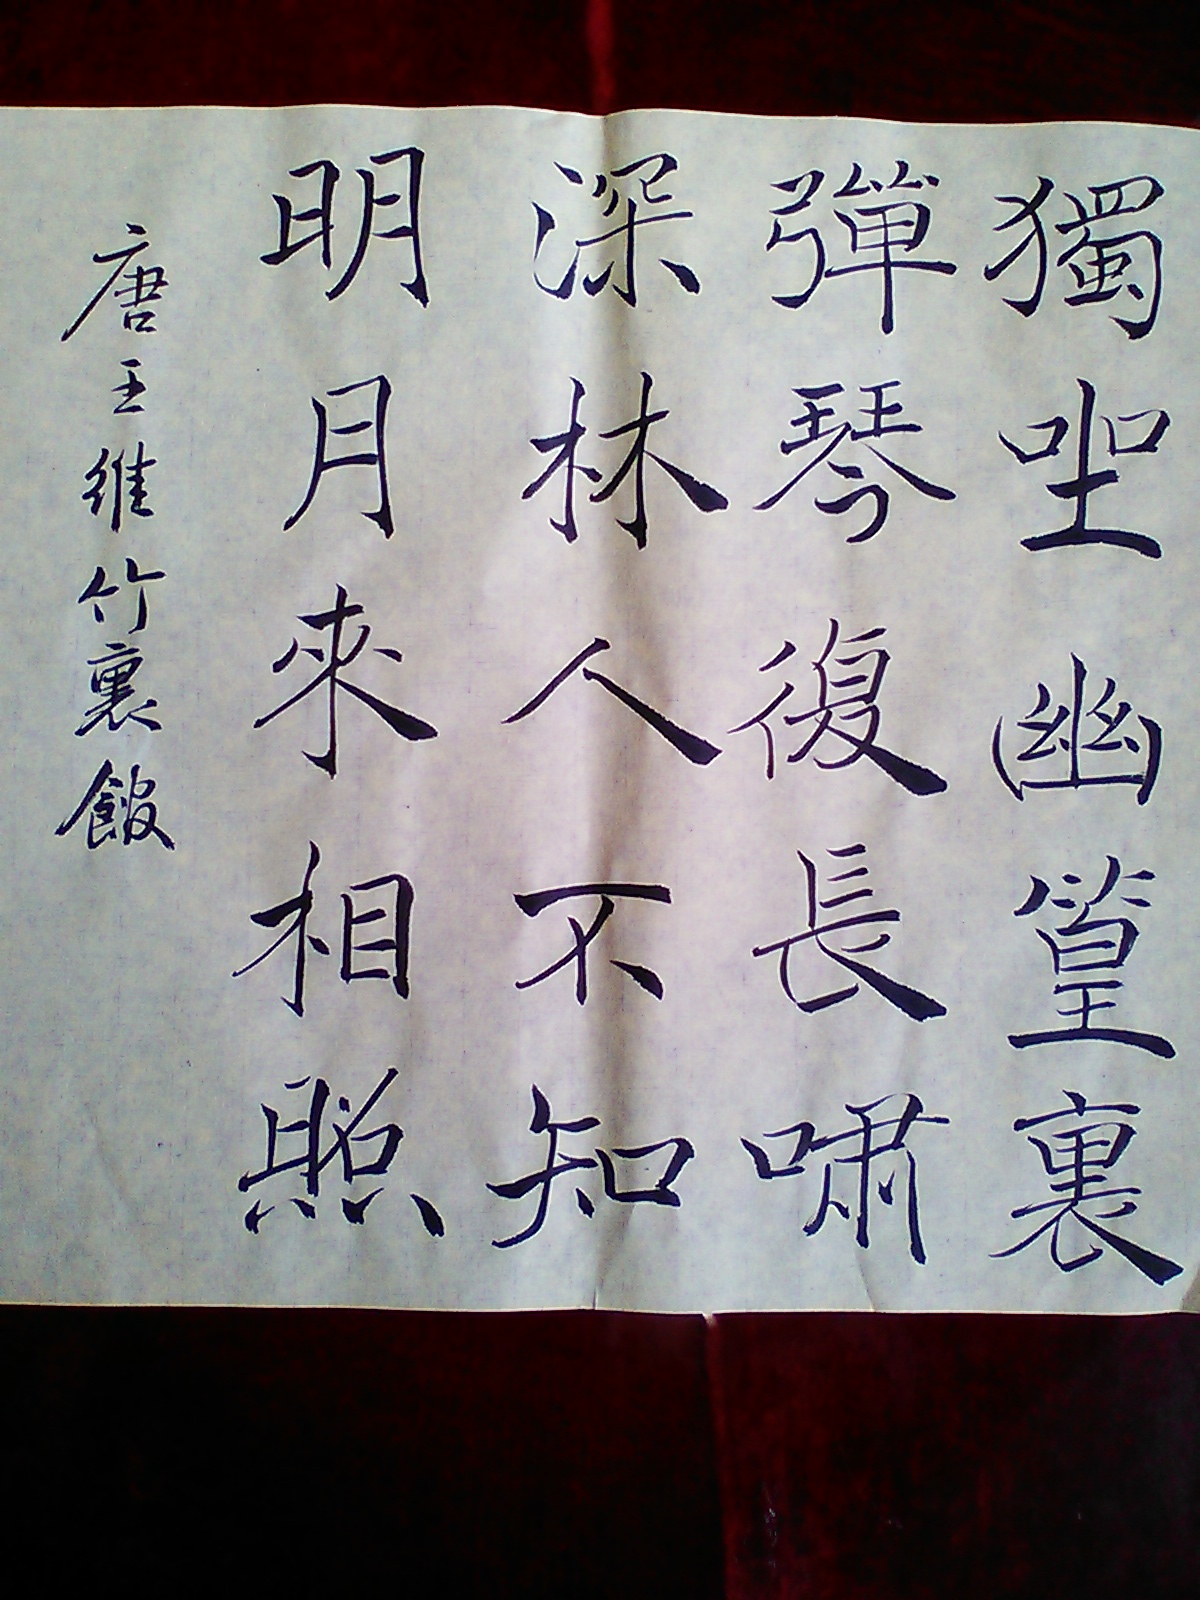 獨坐幽篁裏
彈琴復長嘯
深林人不知
明月來相照
唐王維竹裏館